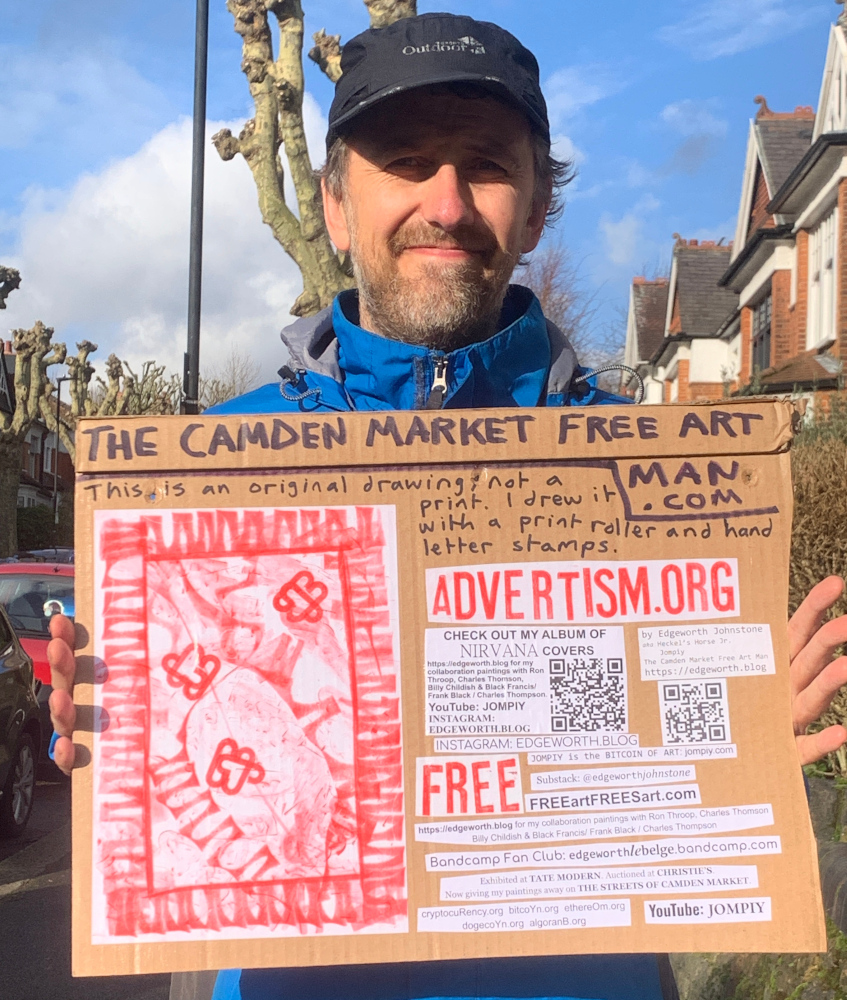 Outdoor
THE CAMDEN MARKET FREE ART
MAN
.COM
This is an original drawing, not a
print. I drew it
with a print roller and hand
letter stamps.
ADVERTISM.ORG
CHECK OUT MY ALBUM OF
NIRVANA COVERS
https://edgeworth.blog for my
collaboration paintings with Ron
Throop, Charles Thomson,
Billy Childish & Black Francis/
Frank Black / Charles Thompson.
YouTube: JOMPIY
INSTAGRAM:
EDGEWORTH.BLOG
by Edgeworth Johnstone
aka Heckel's Horse Jr.
Jompiy
The Camden Market Free Art Man
https://edgeworth.blog
INSTAGRAM: EDGEWORTH.BLOG
JOMPIY is the BITCOIN OF ART: jompiy.com
FREE
Substack: @edgeworthjohnstone
FREEartFREESart.com
https://edgeworth.blog for my collaboration paintings with Ron Throop, Charles Thomson
Billy Childish & Black Francis/ Frank Black / Charles Thompson
Bandcamp Fan Club: edgeworthlebelge.bandcamp.com
Exhibited at TATE MODERN. Auctioned at CHRISTIE'S.
Now giving my paintings away on THE STREETS OF CAMDEN MARKET
cryptocuRency.org bitcoYn.org ethereOm.org
dogecoYn.org algoranB.org
YouTube: JOMPIY